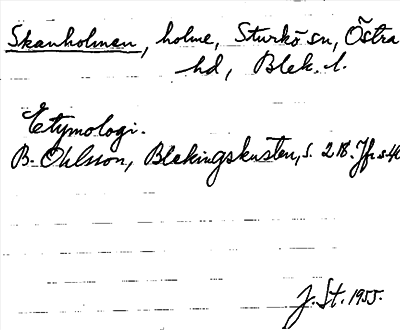 Skanholmen, holme, Sturkö sn, Östra
hd, Blek. l.
Etymologi.
B. Ohlsson, Blekingskusten, s. 218. Jfr s. 40
J. St. 1955.